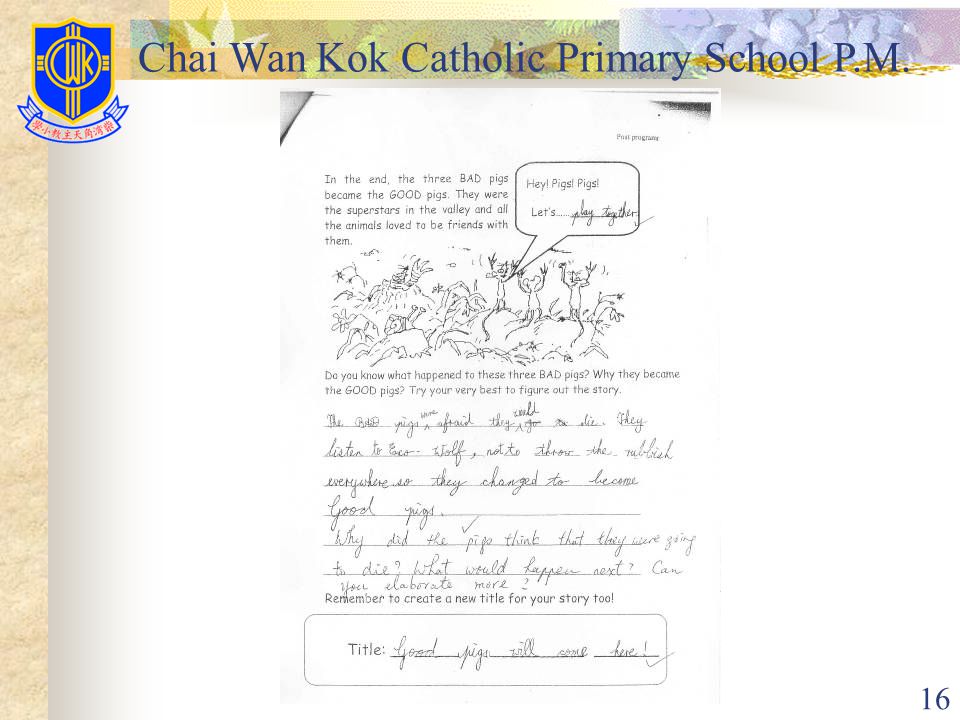 Chai Wan Kok Catholic Primary School P.M.
學小教主天角灣柴
Post programme
In the end, the three BAD pigs
became the GOOD pigs. They were
the superstars in the valley and all
the animals loved to be friends with
them.
Hey! Pigs! Pigs!
Let's...... play together.
Do you know what happened to these three BAD pigs? Why they became
the GOOD pigs? Try your very best to figure out the story.
The BAD pigs were afraid they would go to die. They
listen to Eco-Wolf, not to throw the rubbish
everywhere so they changed to become
Good pigs.
Why did the pigs think that they were going
to die? What would happen next? Can
you elaborate more?
Remember to create a new title for your story too!
Title: Good pigs will come here!
16